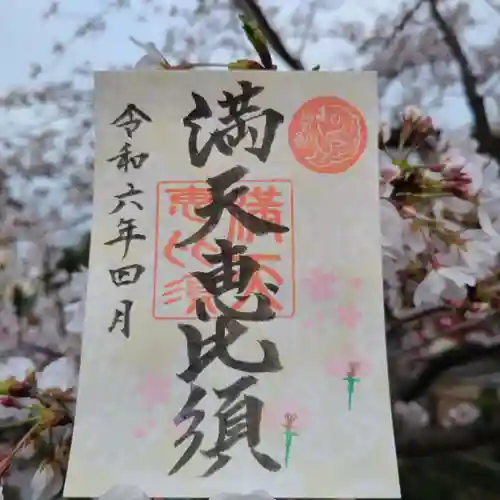 満天恵比須
満天
恵比須
令和六年四月